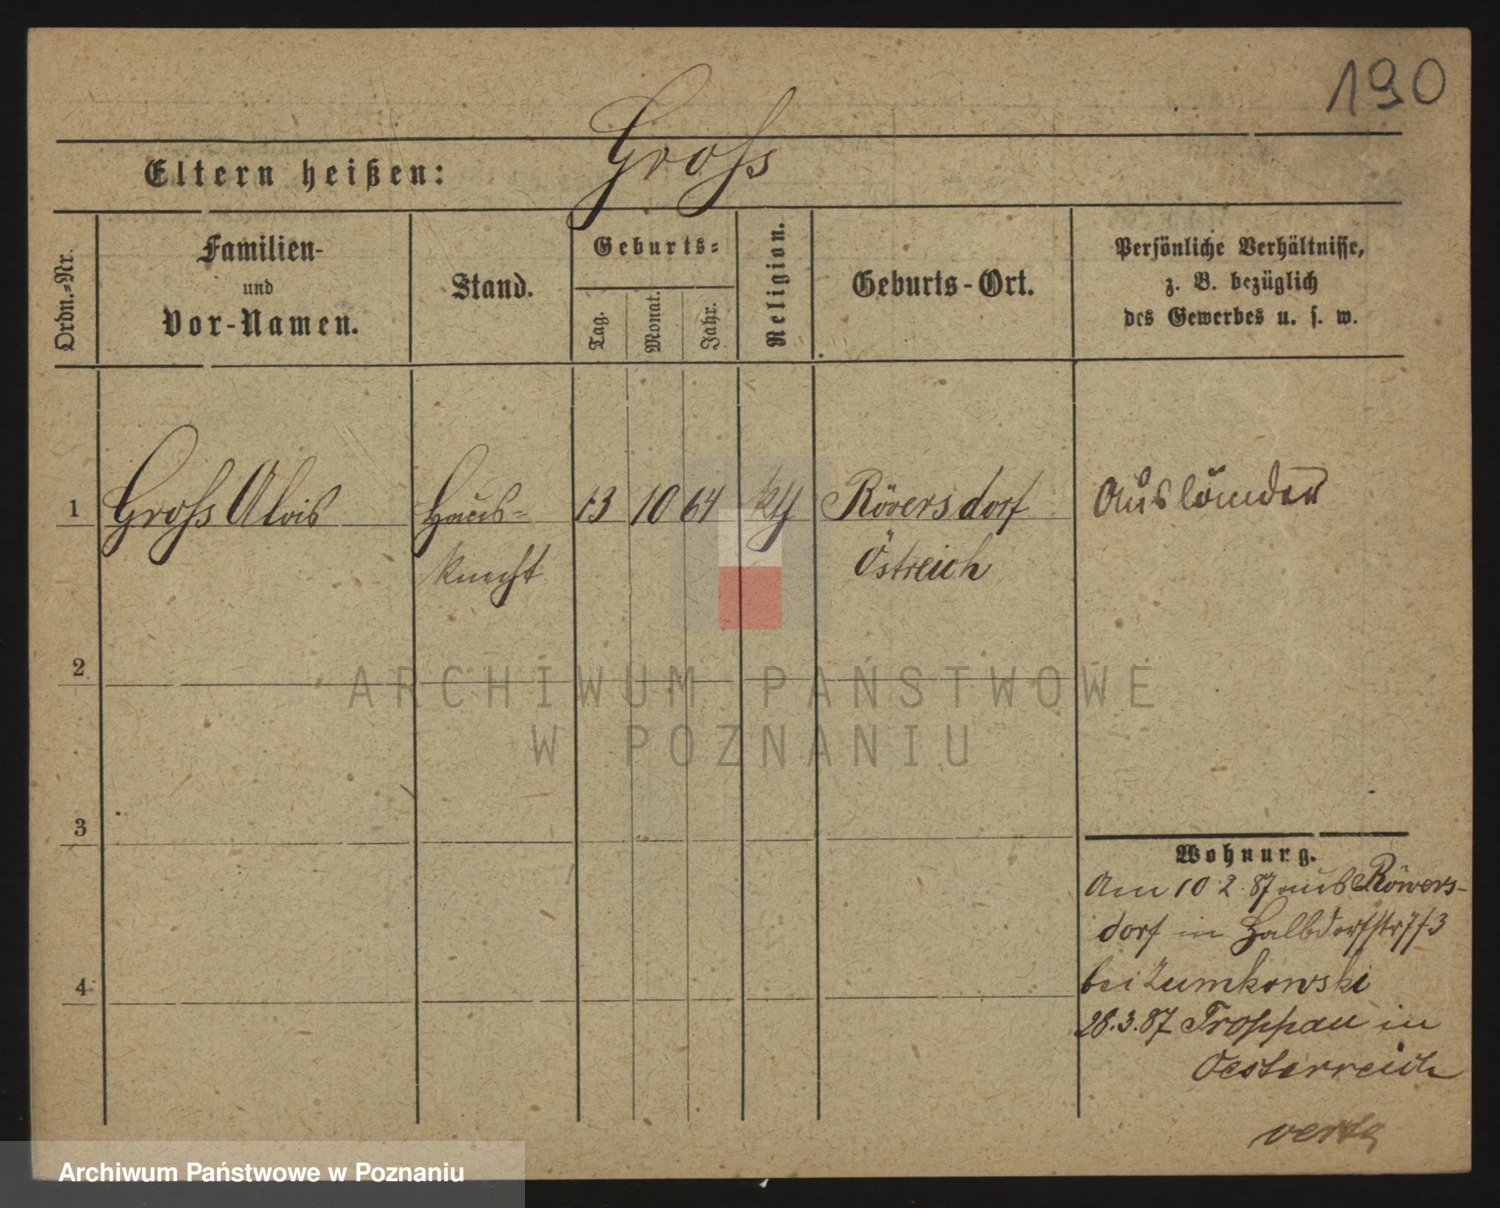 190
Eltern heißen: Gross
Ordn.-Nr.
Familien-
und
Vor-Namen.
Stand.
Geburts-
Tag.
Monat.
Jahr.
Religion.
Geburts-Ort.
Persönliche Verhältnisse,
z. B. bezüglich
des Gewerbes u. s. w.
1 Gross Alois Haus- 13 10 64 kth Röversdorf Ausländer
knecht Östreich
2
3
4
Wohnung.
Am 10 2. 87 aus Röwers-
dorf in Halbdorfstr
bei Zumkowski
28.3.87 Troppau in
Oesterreich
verzg
ARCHIWUM PAŃSTWOWE
W POZNANIU
Archiwum Państwowe w Poznaniu